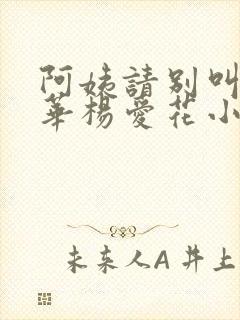 阿姨請别叫
華楊愛花小
未来人A 井上